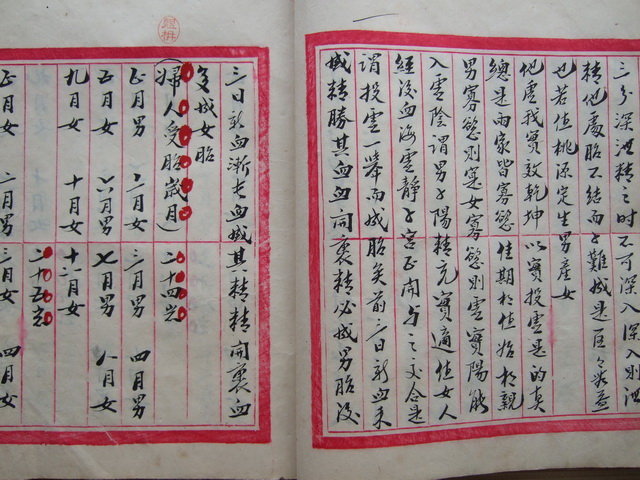 三分深泄精之時不可深入深入則泄
精他處胎不結而子難成是
也若值桃源定生男產女
他虛我實效乾坤 以實投虛是的真
總是兩家皆寡慾 佳期於值始相親
男寡慾則實女寡慾則虛實陽能
入虛陰謂男子陽精充實適值女人
經後血海虛靜子宮正開與之交合是
謂投虛一舉而成胎矣前三日新血未
盛精勝其血血開裹精必成男胎後
三日新血漸長血盛其精精開裹血
多成女胎
(婦人受胎歲月) 二十四歲
正月男 二月女 三月男 四月男
五月女 六月男 七月男 八月女
九月女 十月女 十一月女
二十五歲
正月女 二月男 三月女 四月女